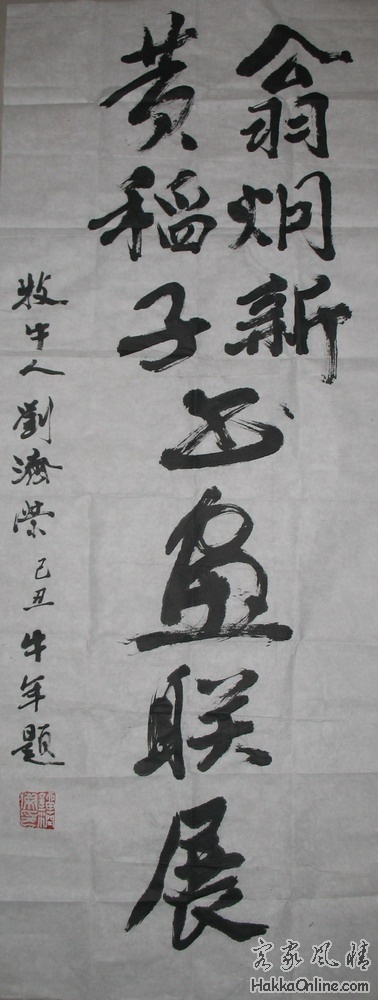 翁炯新
黄稻子
书画联展
牧牛人劉濟榮己丑牛年題
客家风情
HakkaOnline.com